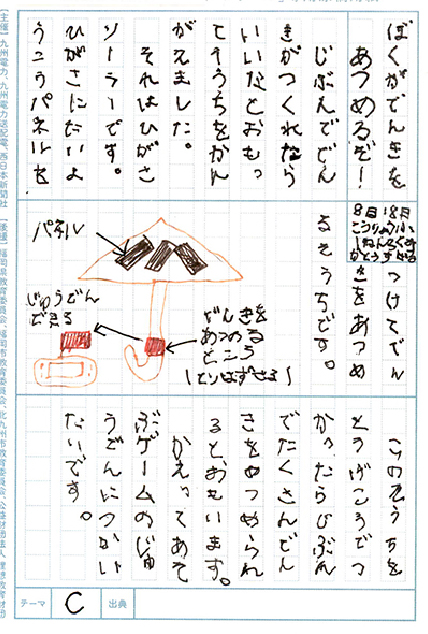 ぼくがでんきを
あつめるぞ！
じぶんででん
きがつくれたら
いいなとおもっ
てそうちをかん
がえました。
それはひがさ
ソーラーです。
ひがさにたいよ
うこうパネルを
8日18月
つけてでん
きをあつめ
るそうちです。
パネル
でんきを
あつめる
ところ
(とりはずせる)
じゅうでん
できる
このそうちを
とうげこうでつ
かったらじぶん
でたくさんでん
きをあつめられ
るとおもいます。
かえってあそ
ぶゲームのじゅ
うでんにつかい
たいです。
テーマ C 出典
【主催】九州電力、九州電力送配電、西日本新聞社 【後援】福岡県教育委員会、福岡市教育委員会、北九州市教育委員会、公益財団法人